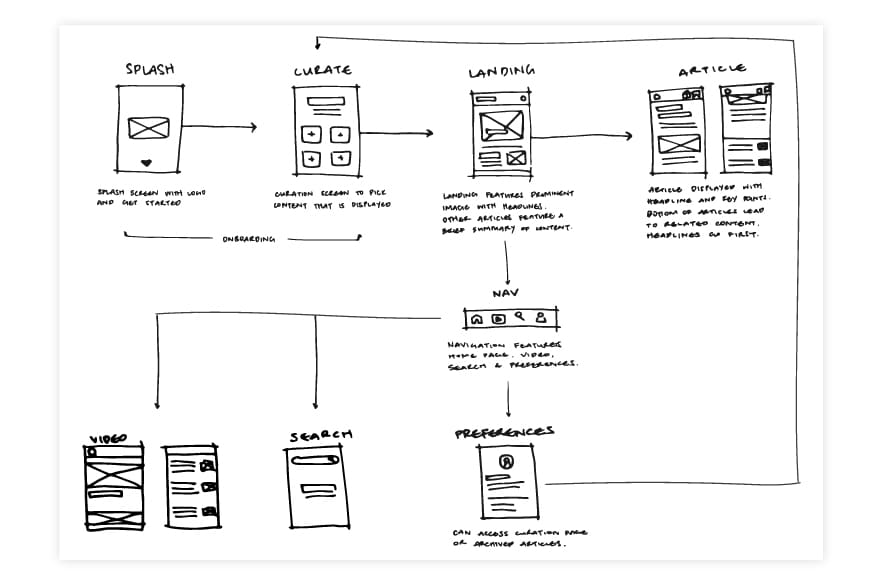 SPLASH
CURATE
LANDING
ARTICLE
SPLASH SCREEN WITH LOGO
AND GET STARTED
CURATION SCREEN TO PICK
CONTENT THAT IS DISPLAYED
LANDING FEATURES PROMINENT
IMAGE WITH HEADLINES.
OTHER ARTICLES FEATURE A
BRIEF SUMMARY OF CONTENT.
ARTICLE DISPLAYED WITH
HEADLINE AND KEY POINTS.
BOTTOM OF ARTICLES LEAD
TO RELATED CONTENT,
HEADLINES FIRST.
ONBOARDING
NAV
NAVIGATION FEATURES
HOME PAGE, VIDEO,
SEARCH & PREFERENCES.
VIDEO
SEARCH
PREFERENCES
CAN ACCESS CURATION PAGE
OR ARCHIVED ARTICLES.